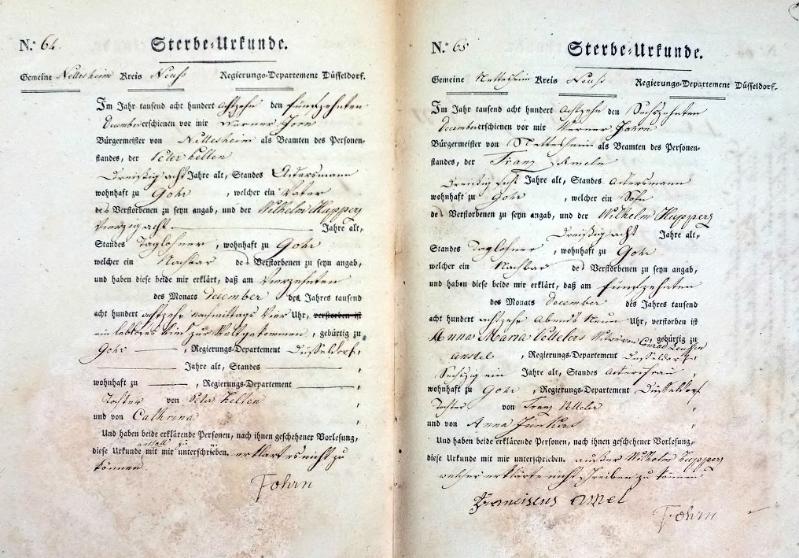 N.° 64. Sterbe-Urkunde.
Gemeine Nettesheim Kreis Neuß Regierungs-Departement Düsseldorf.
Im Jahr tausend acht hundert achtzehn den fünfzehnten
December erschienen vor mir Werner Fohrn
Bürgermeister von Nettesheim als Beamten des Personen-
standes, der Peter Hellen
Dreißig acht Jahre alt, Standes Ackersmann
wohnhaft zu Gohr, welcher ein Vater
des Verstorbenen zu seyn angab, und der Wilhelm Huppertz
Vierzig acht Jahre alt,
Standes Taglohner, wohnhaft zu Gohr
welcher ein Nachbar des Verstorbenen zu seyn angab,
und haben diese beide mir erklärt, daß am Vierzehnten
des Monats December des Jahres tausend
acht hundert achtzehn nachmittags Vier Uhr, verstorben ist
ein lebloses Kind zur Welt gekommen, gebürtig zu
Gohr, Regierungs-Departement Düsseldorf,
Jahre alt, Standes
wohnhaft zu , Regierungs-Departement
Tochter von Peter Hellen
und von Cathrina
Und haben beide erklärende Personen, nach ihnen geschehener Vorlesung,
diese Urkunde mit mir unterschrieben. erklart es nicht zu
können
Fohrn
N.° 65 Sterbe-Urkunde.
Gemeine Nettesheim Kreis Neuß Regierungs-Departement Düsseldorf.
Im Jahr tausend acht hundert achtzehn den Sechszehnten
December erschienen vor mir Werner Fohrn
Bürgermeister von Nettesheim als Beamten des Personen-
standes, der Franz
Dreißig acht Jahre alt, Standes Ackersmann
wohnhaft zu Gohr, welcher ein Sohn
des Verstorbenen zu seyn angab, und der Wilhelm Huppertz
Dreißig acht Jahre alt,
Standes Taglohner, wohnhaft zu Gohr
welcher ein Nachbar des Verstorbenen zu seyn angab,
und haben diese beide mir erklärt, daß am fünfzehnten
des Monats December des Jahres tausend
acht hundert achtzehn Abends Neun Uhr, verstorben ist
Anna Maria Conrad gebürtig zu
, Regierungs-Departement Düsseldorf
Sechzig ein Jahre alt, Standes Ackersfrau
wohnhaft zu Gohr, Regierungs-Departement Düsseldorf
Tochter von Franz
und von Anna
Und haben beide erklärende Personen, nach ihnen geschehener Vorlesung,
diese Urkunde mit mir unterschrieben. außer Wilhelm Huppertz
welcher erklärte nicht schreiben zu können
Franciscus
Fohrn